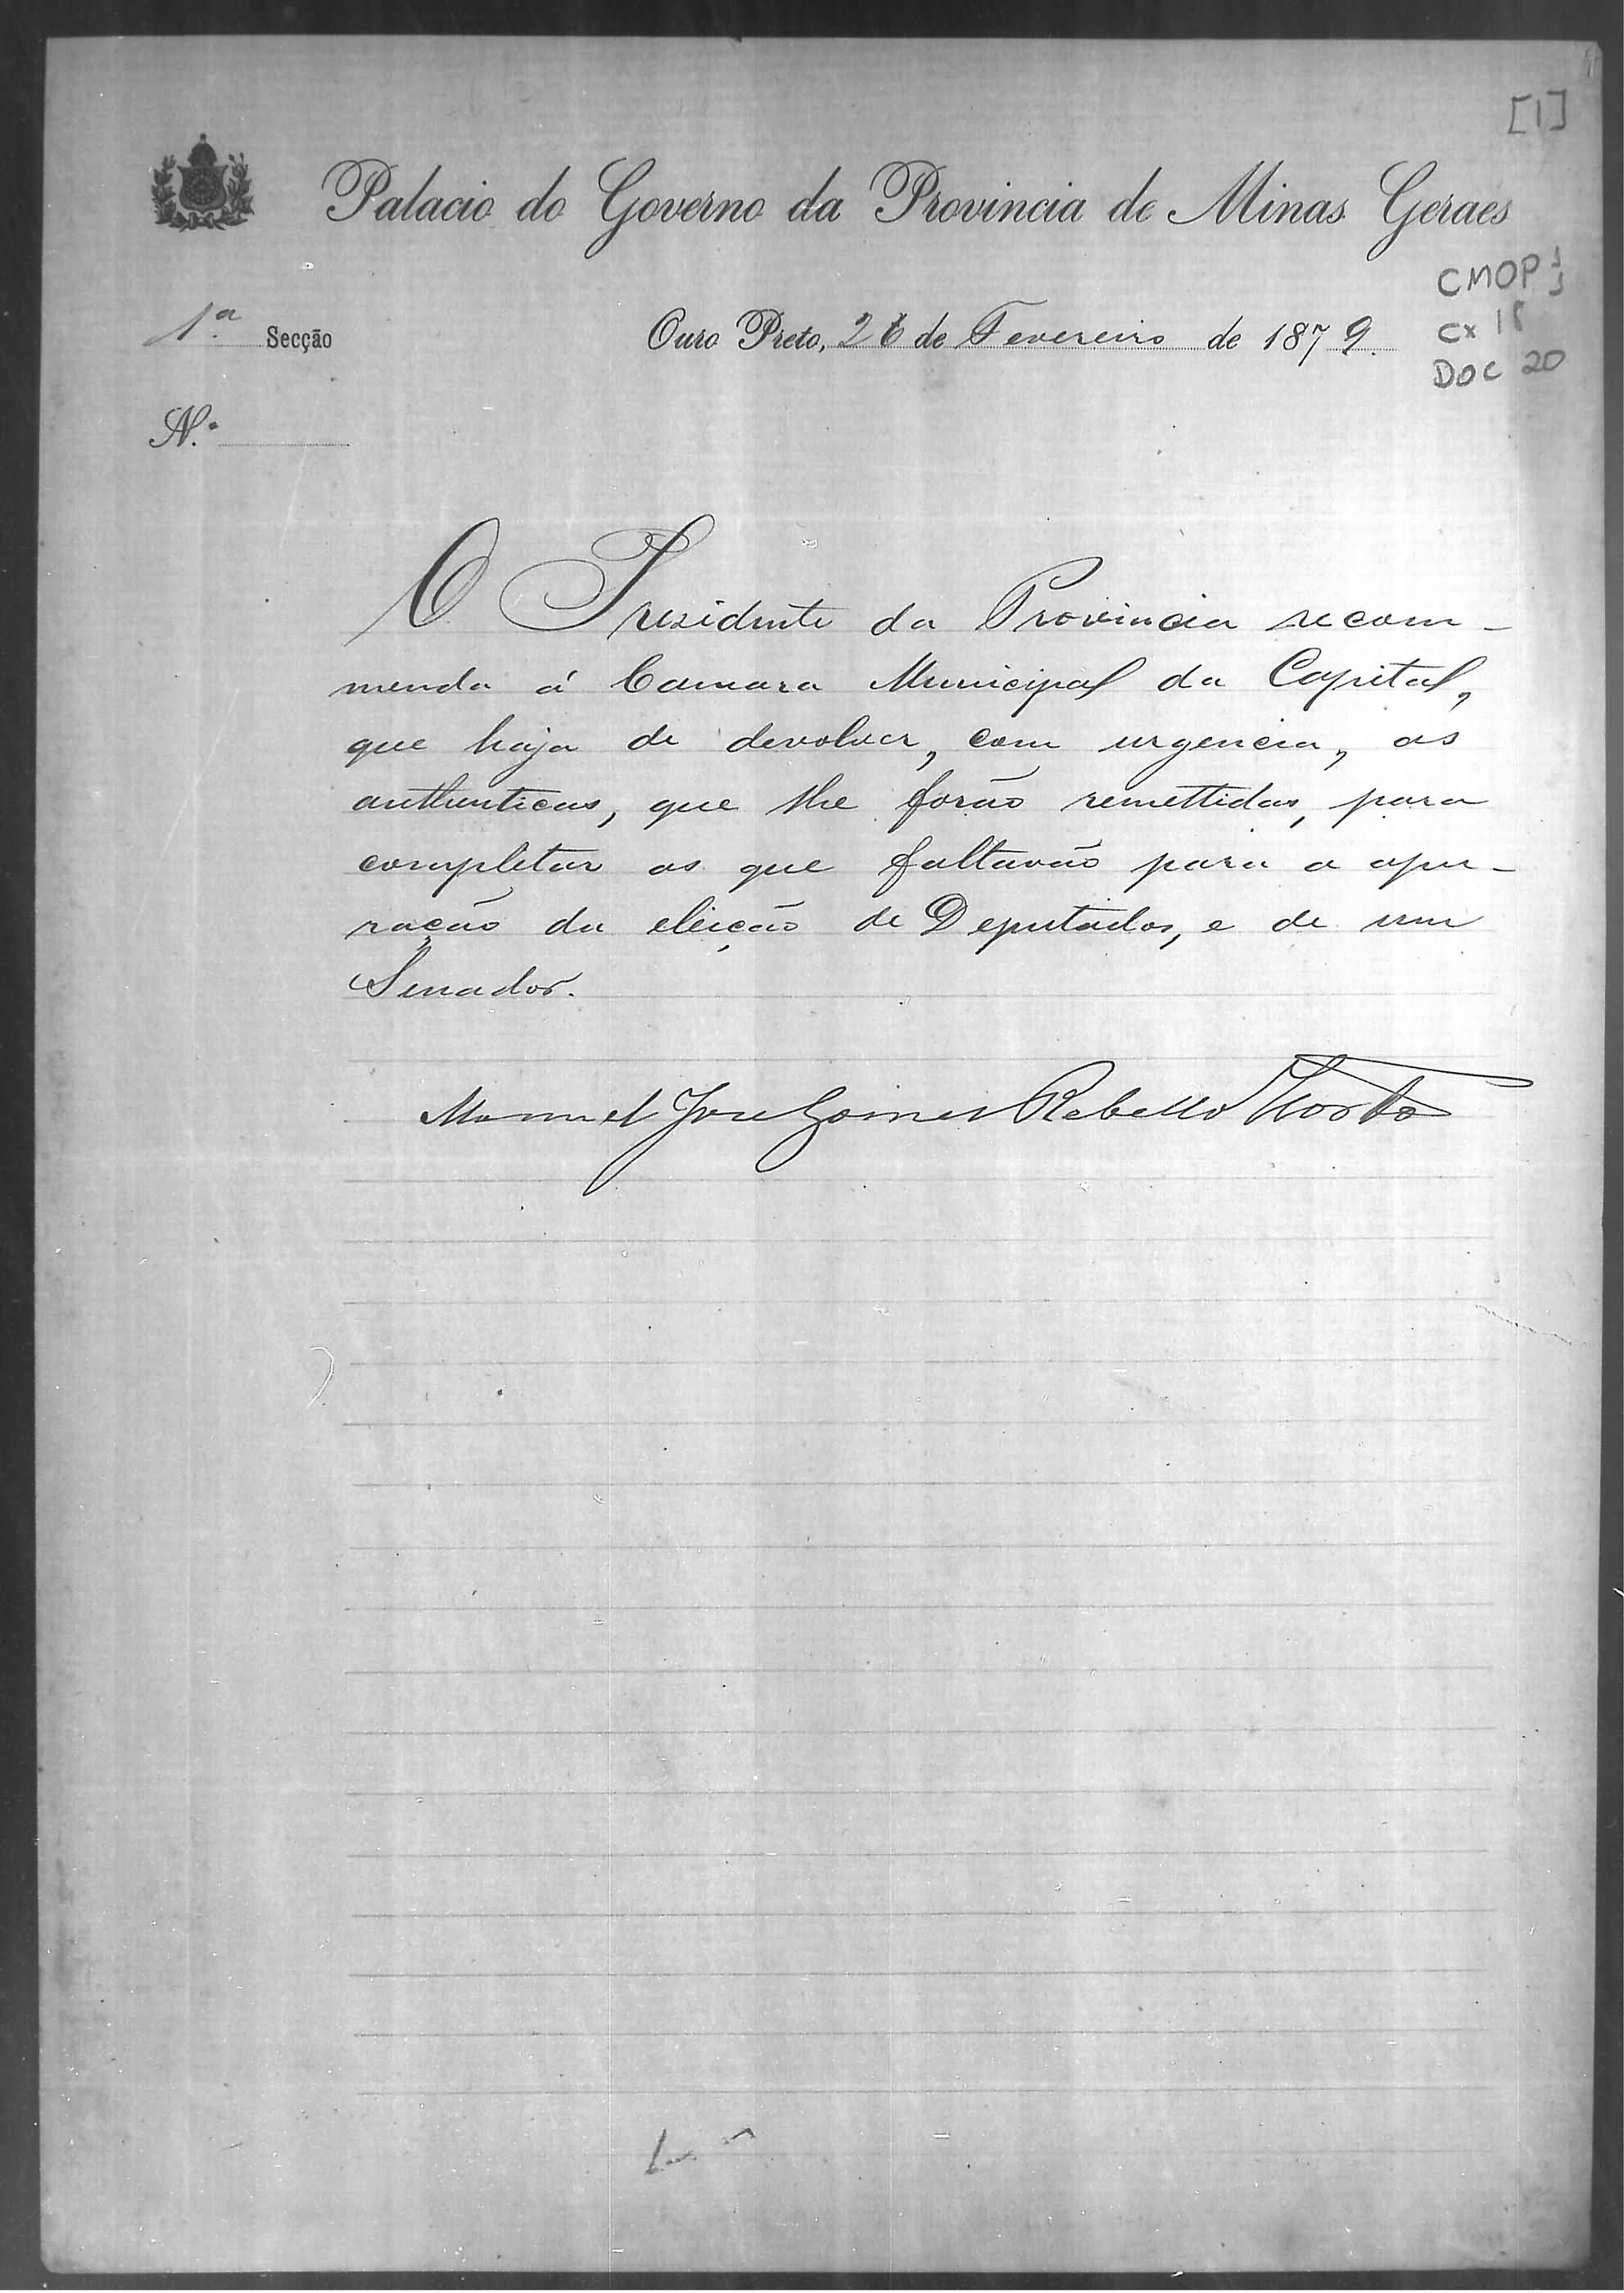 [1]
Palacio do Governo da Provincia de Minas Geraes
CMOP
1.ª Secção
Ouro Preto, 26 de Fevereiro de 1879.
Cx 18
DOC 20
N.º
O Presidente da Provincia recom-
menda á Camara Municipal da Capital,
que haja de devolver, com urgencia, as
authenticas, que lhe forão remettidas, para
completar as que faltavão para a apu-
ração da eleição de Deputados, e de um
Senador.
Manuel José Gomes Rebello Horta